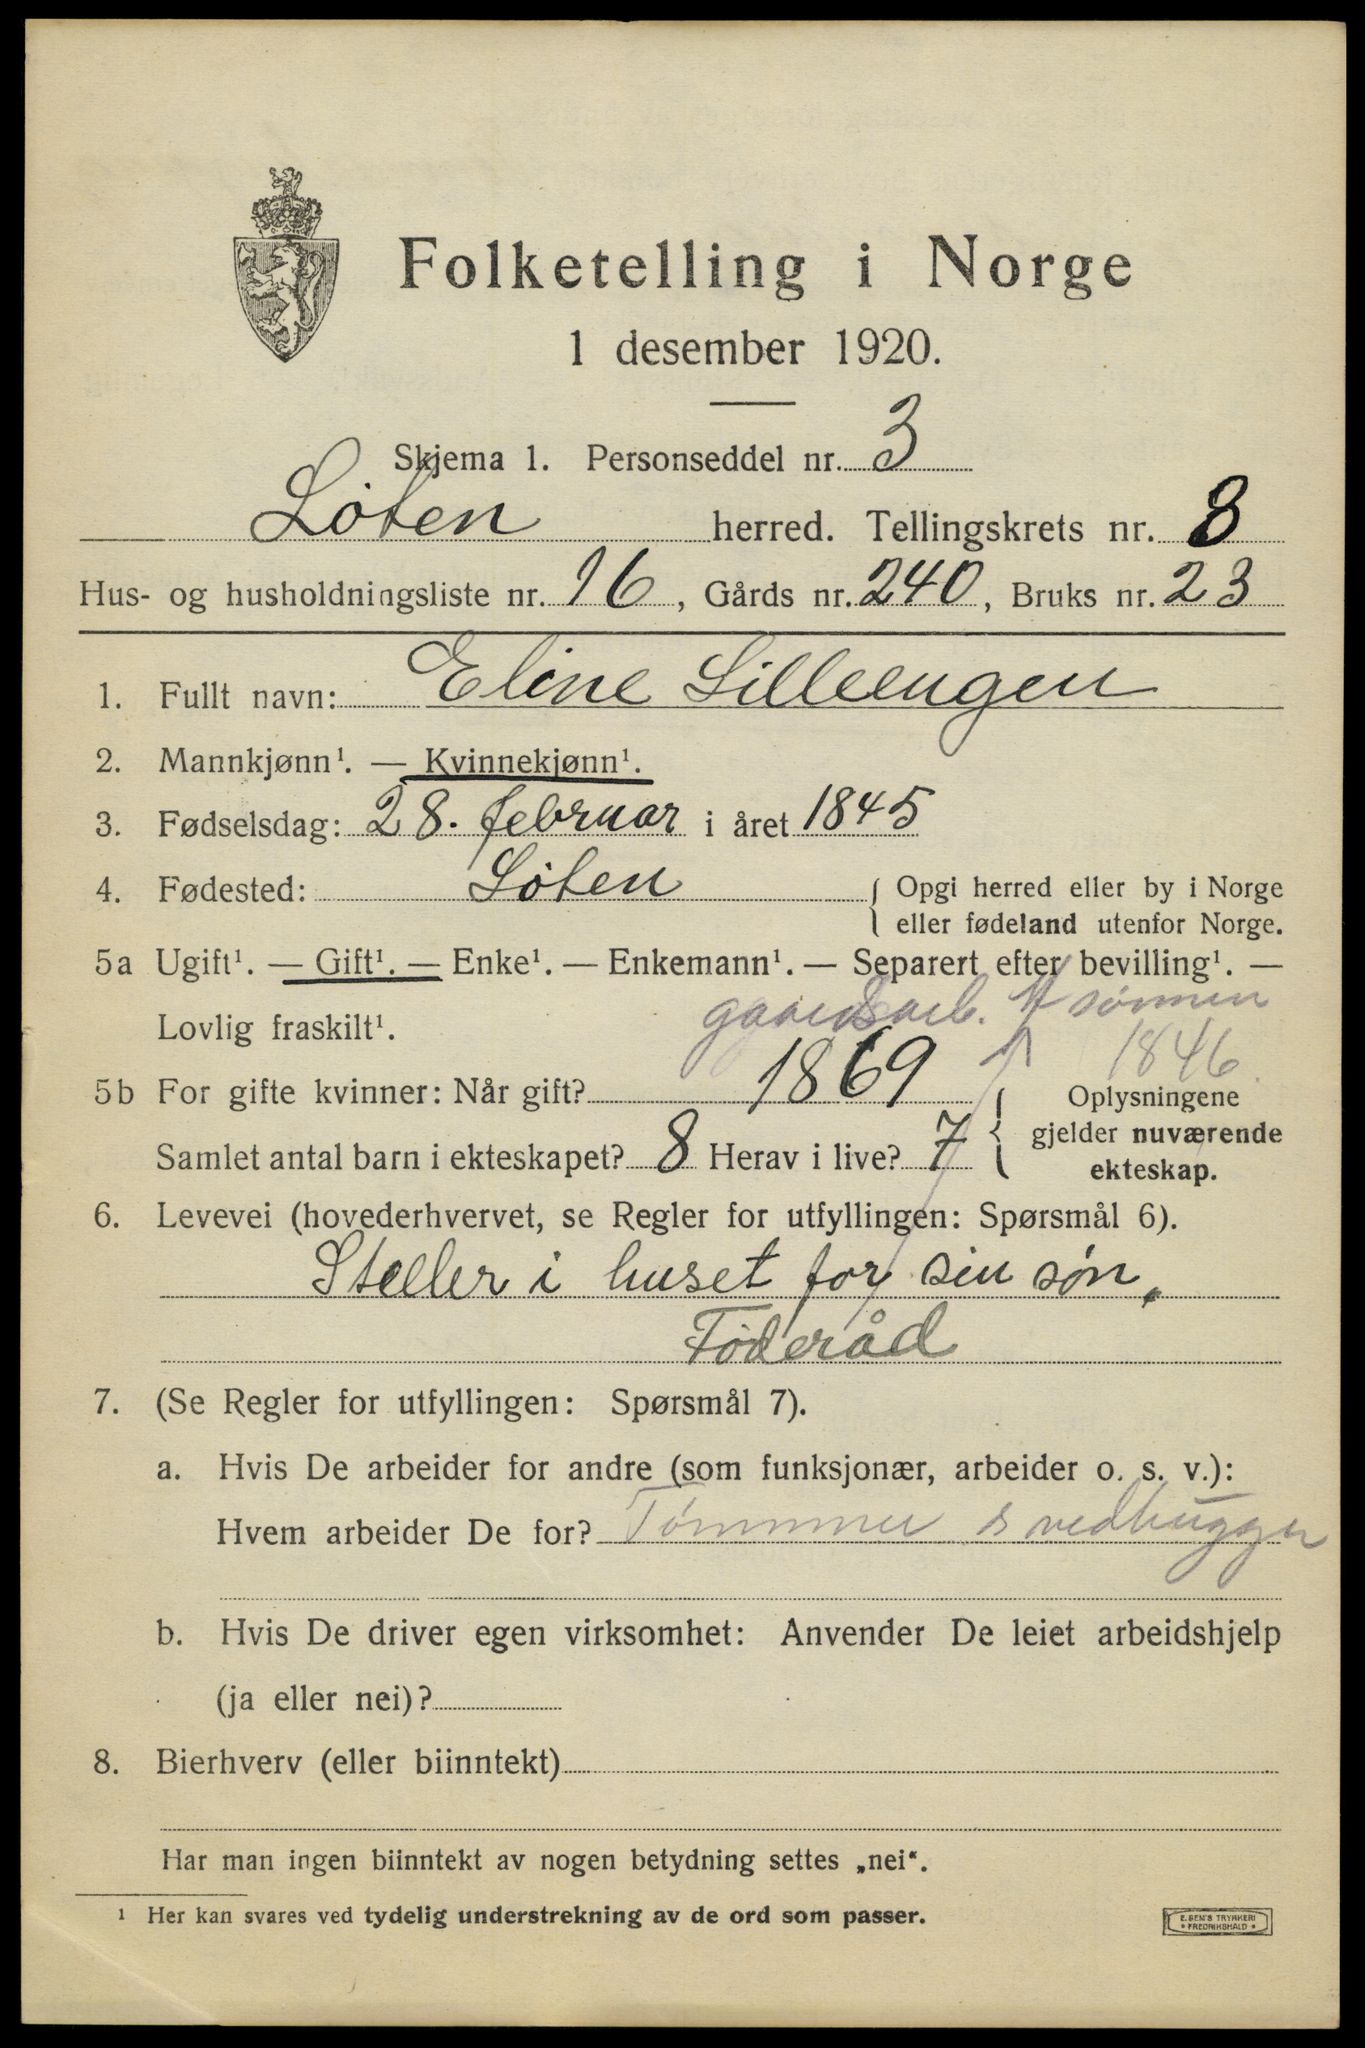 Folketelling i Norge
1 desember 1920.
Skjema 1. Personseddel nr. 3
Løten herred. Tellingskrets nr. 8
Hus- og husholdningsliste nr. 16, Gårds nr. 240, Bruks nr. 23
1. Fullt navn: Eline Lilleengen
2. Mannkjønn¹. — Kvinnekjønn¹.
3. Fødselsdag: 28. februar i året 1845
4. Fødested: Løten { Opgi herred eller by i Norge
eller fødeland utenfor Norge.
5a Ugift¹. — Gift¹. — Enke¹. — Enkemann¹. — Separert efter bevilling¹. —
Lovlig fraskilt¹. gaardsarb. sønnen
1846
5b For gifte kvinner: Når gift? 1869
Samlet antal barn i ekteskapet? 8 Herav i live? 7 { Oplysningene
gjelder nuværende
ekteskap.
6. Levevei (hovederhvervet, se Regler for utfyllingen: Spørsmål 6).
Steller i huset for sin søn.
Føderåd
7. (Se Regler for utfyllingen: Spørsmål 7).
a. Hvis De arbeider for andre (som funksjonær, arbeider o. s. v.):
Hvem arbeider De for? Tømmer & vedhugger
b. Hvis De driver egen virksomhet: Anvender De leiet arbeidshjelp
(ja eller nei)?
8. Bierhverv (eller biinntekt)
Har man ingen biinntekt av nogen betydning settes „nei“.
¹ Her kan svares ved tydelig understrekning av de ord som passer.
E. SEM'S TRYKKERI
* FREDRIKSHALD *